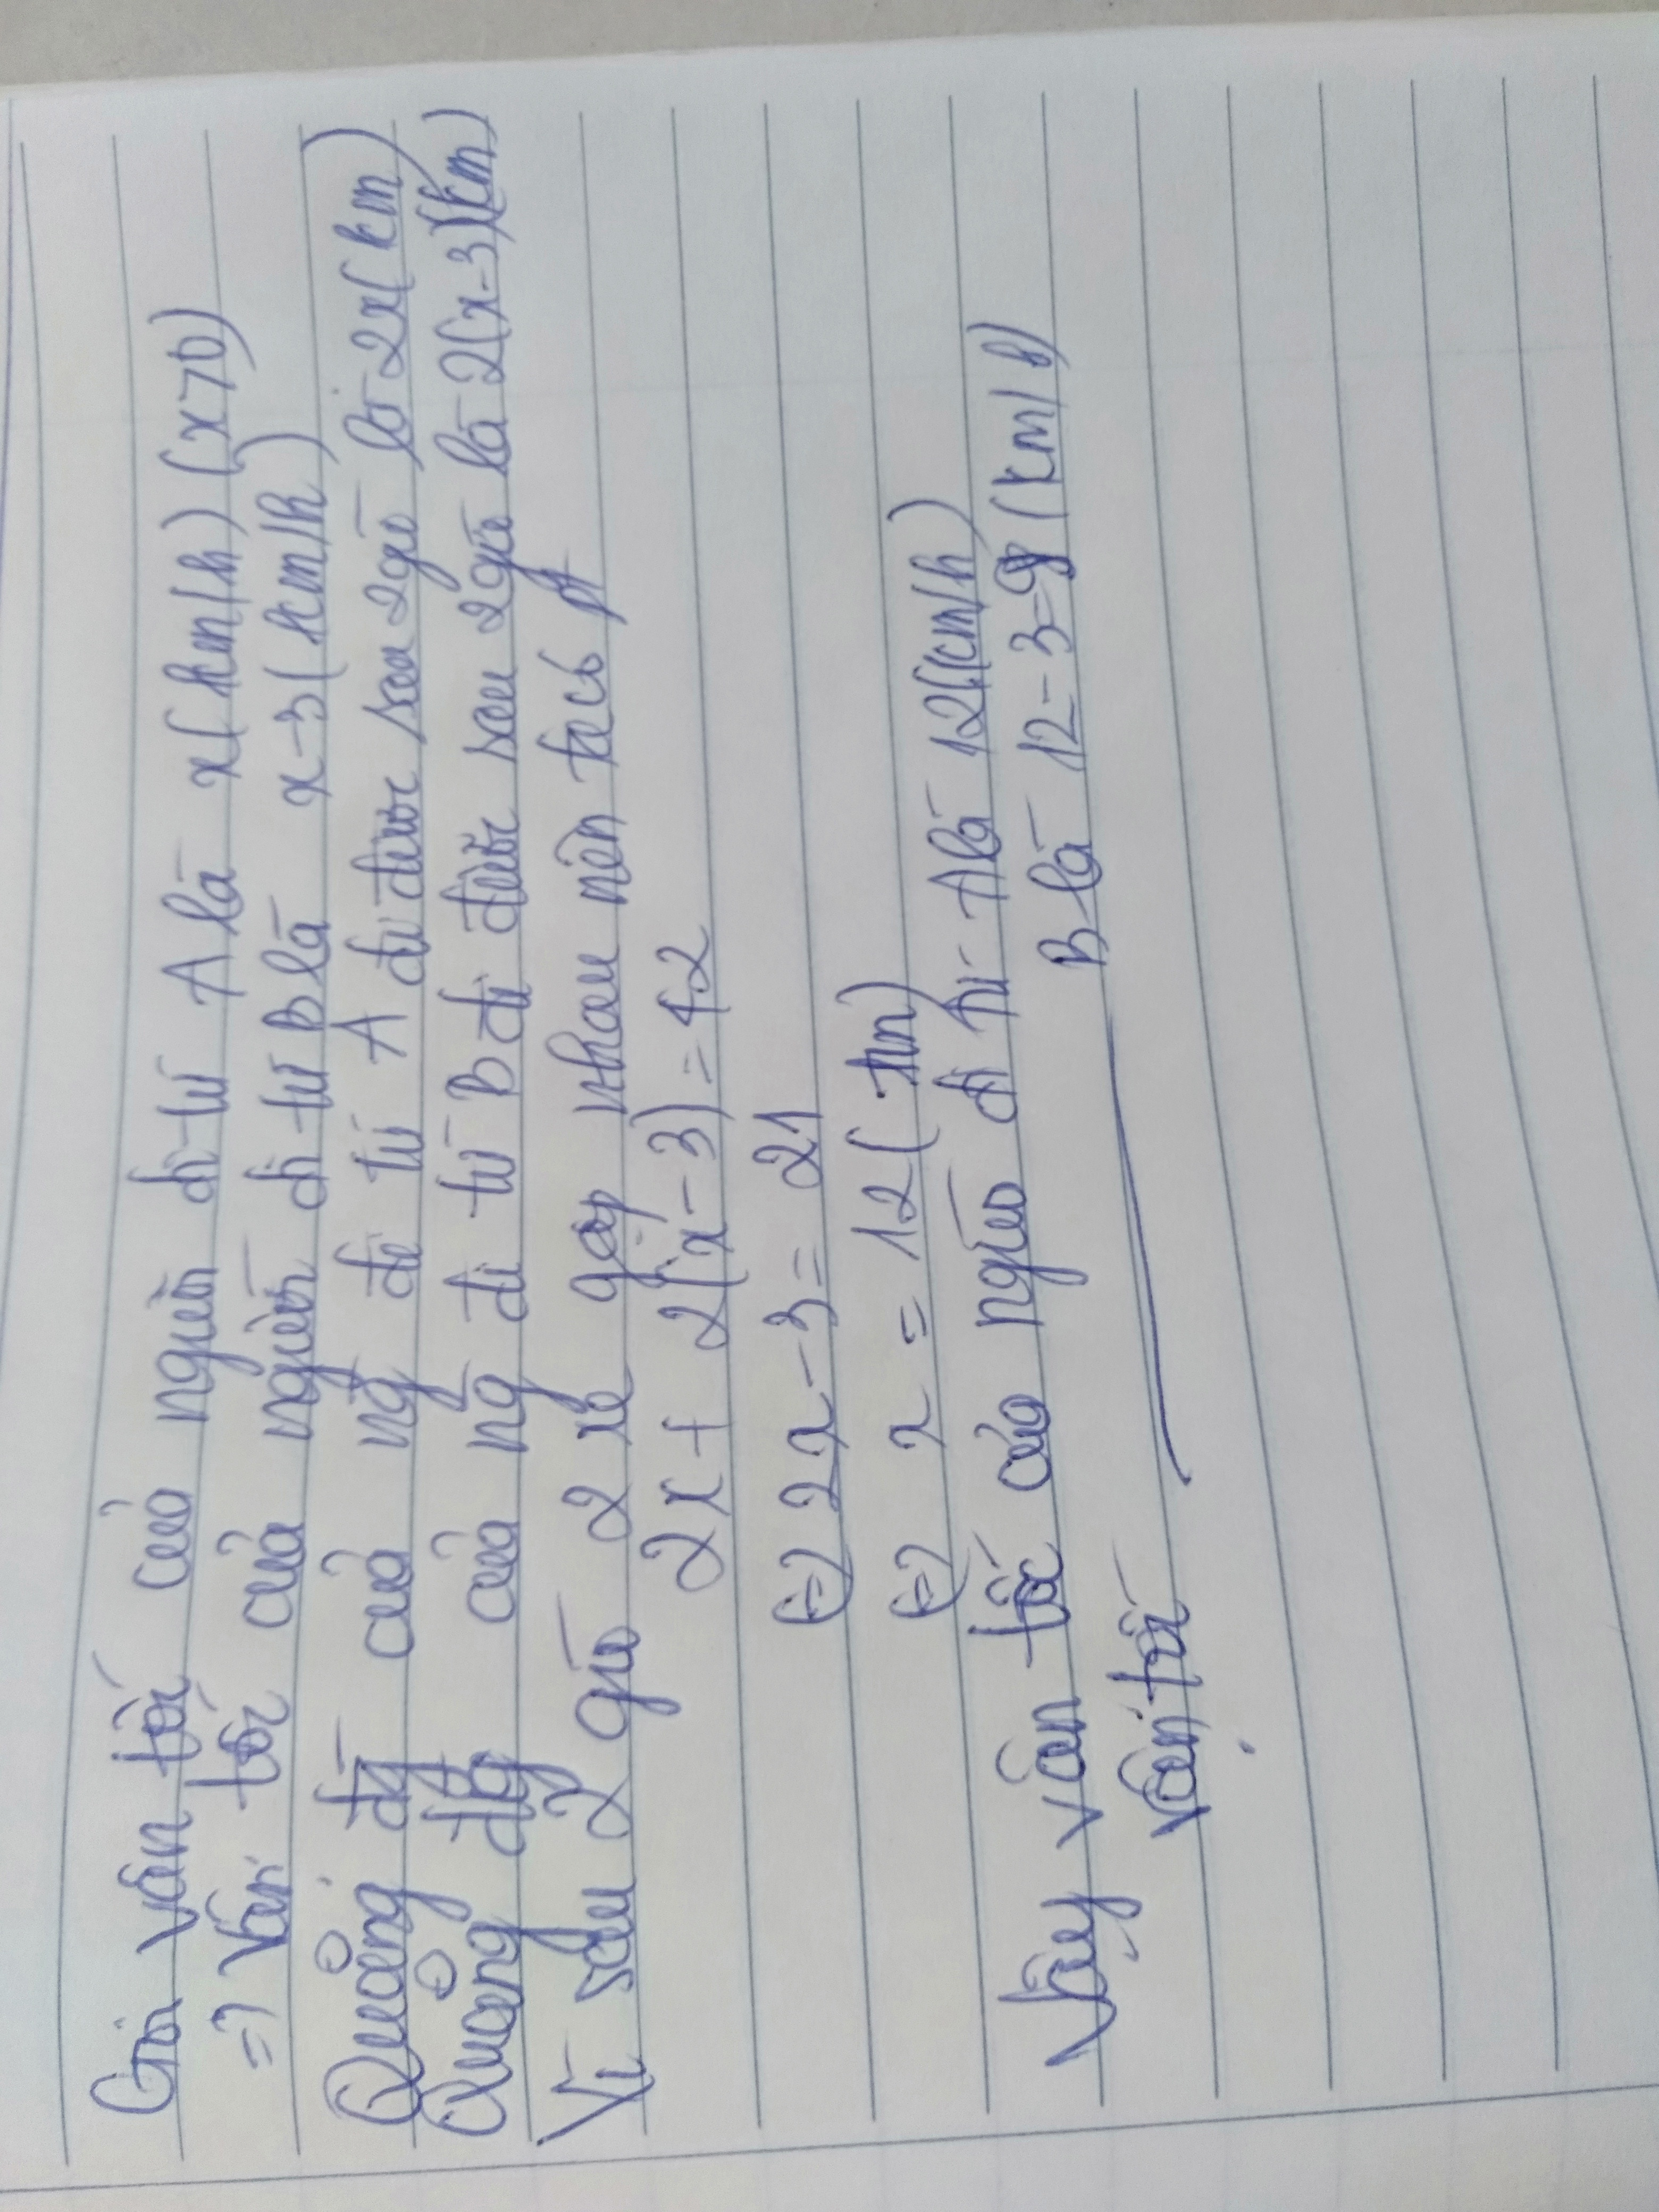 Gọi vận tốc của người đi từ A là x(km/h) (x>0)
=> Vận tốc của người đi từ B là x-3(km/h)
Quãng đg của ng đi từ A đi được sau 2giờ là 2x(km)
Quãng đg của ng đi từ B đi được sau 2giờ là 2(x-3)(km)
Vì sau 2 giờ 2 xe gặp nhau nên ta có pt
2x+ 2(x-3)=42
(=) 2x-3= 21
(=) x = 12( tm)
Vậy vận tốc của người đi từ A là 12(km/h)
vận tốc B là 12-3=9(km/h)